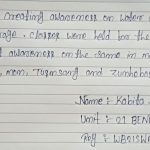 Creating awareness on water
age. Classes were held for the
awareness on the same in m
mon, Tuensang and Zunhebo
Name: Kabita
Unit: 01 BEN